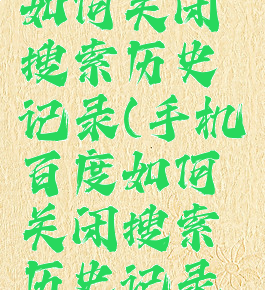 如何关闭
搜索历史
记录(手机
百度如何
关闭搜索
历史记录